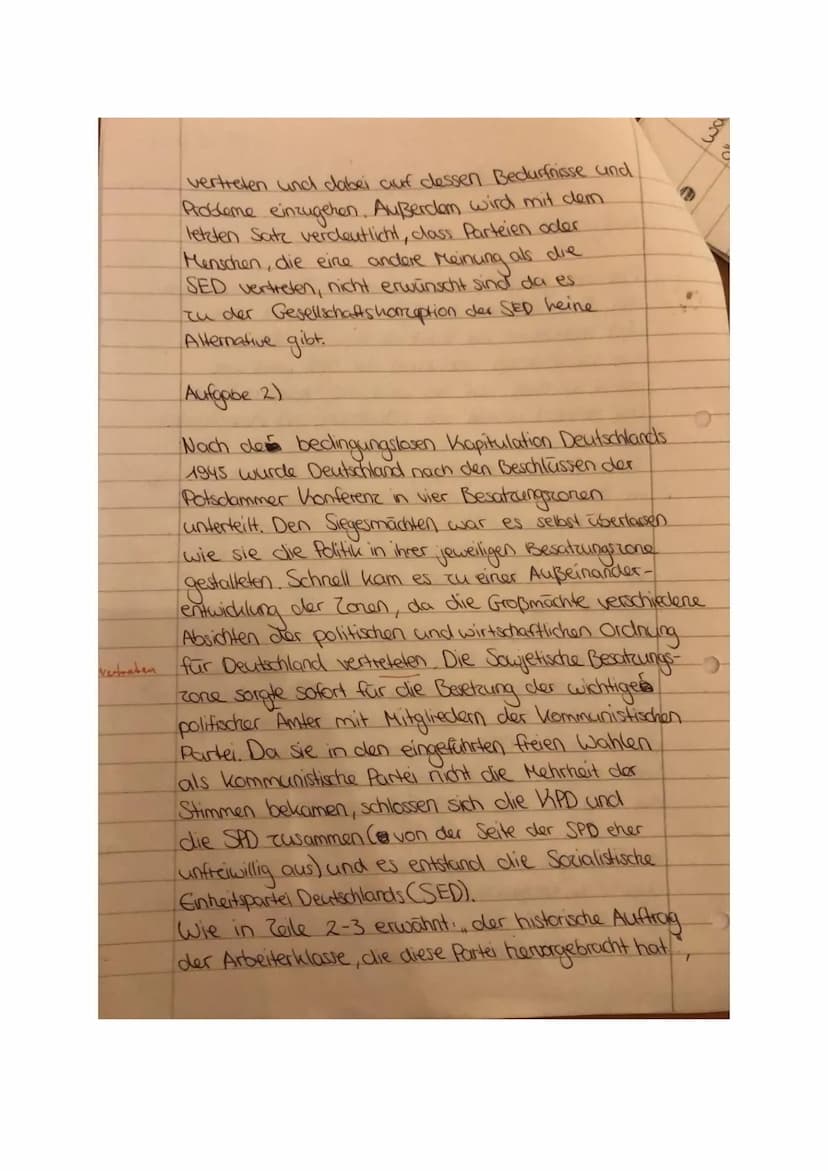 vertreten und dabei auf dessen Bedürfnisse und
Probleme einzugehen. Außerdem wird mit dem
letzten Satz verdeutlicht, dass Parteien oder
Menschen, die eine andere Meinung als die
SED vertreten, nicht erwünscht sind da es
zu der Gesellschaftskonzeption der SED keine
Alternative gibt.
Aufgabe 2)
Nach der bedingungslosen Kapitulation Deutschlands
1945 wurde Deutschland nach den Beschlüssen der
Potsdammer Konferenz in vier Besatzungszonen
unterteilt. Den Siegesmächten war es selbst überlassen
wie sie die Politik in ihrer jeweiligen Besatzungszone
gestalleten. Schnell kam es zu einer Außeinander-
entwicklung der Zonen, da die Großmächte verschiedene
Absichten der politischen und wirtschaftlichen Ordnung
für Deutschland vertretelen. Die Sowjetische Besatzungs-
vertraten
zone sorgte sofort für die Besetzung der wichtigen
politischer Ämter mit Mitgliedern der Kommunistischen
Partei. Da sie in den eingeführten freien Wahlen
als kommunistische Partei nicht die Mehrheit der
Stimmen bekamen, schlossen sich die KPD und
die SPD zusammen (von der Seite der SPD eher
unfreiwillig aus) und es entstand die Sozialistische
Einheitspartei Deutschlands (SED).
Wie in Zeile 2-3 erwähnt: „der historische Auftrag
der Arbeiterklasse, die diese Partei hervorgebracht hat",